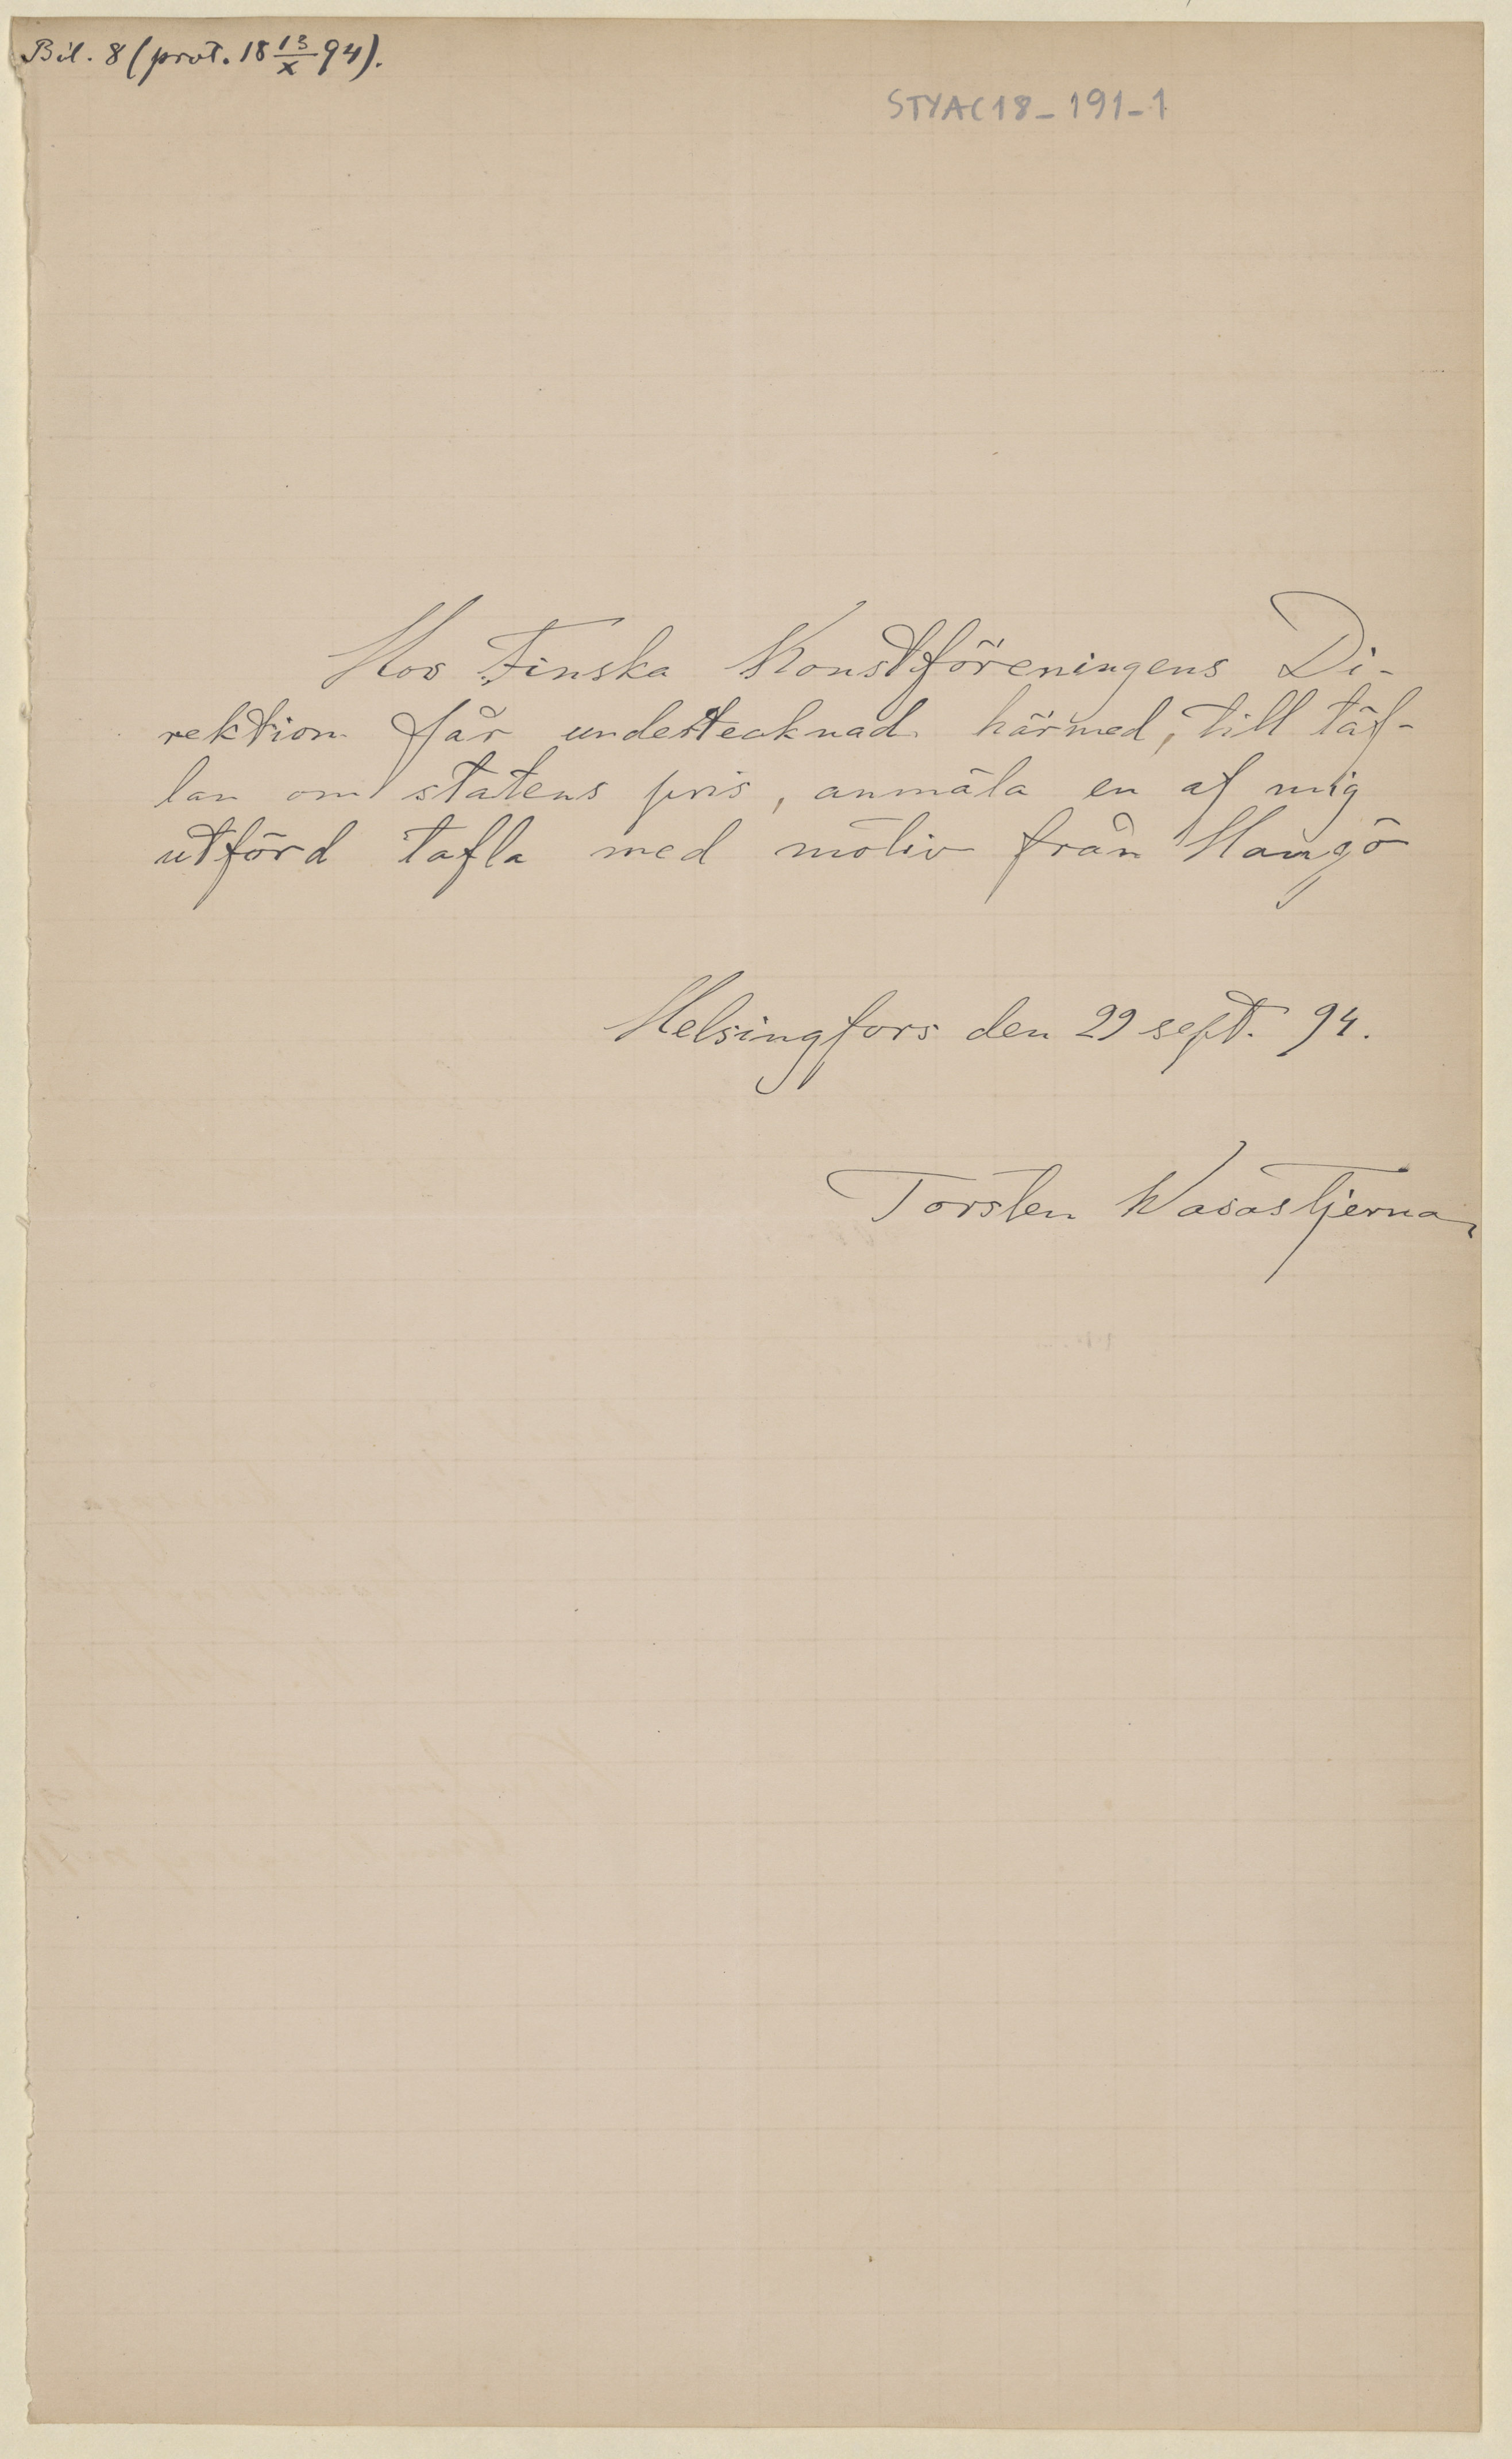 Bil. 8 (prot. 18 13/X 94).
STYAC18_191_1
Hos Finska Konstföreningens Di-
rektion får undertecknad härmed, till täf-
lan om statens pris, anmäla en af mig
utförd tafla med motiv från Hangö
Helsingfors den 29 sept. 94.
Torsten Wasastjerna